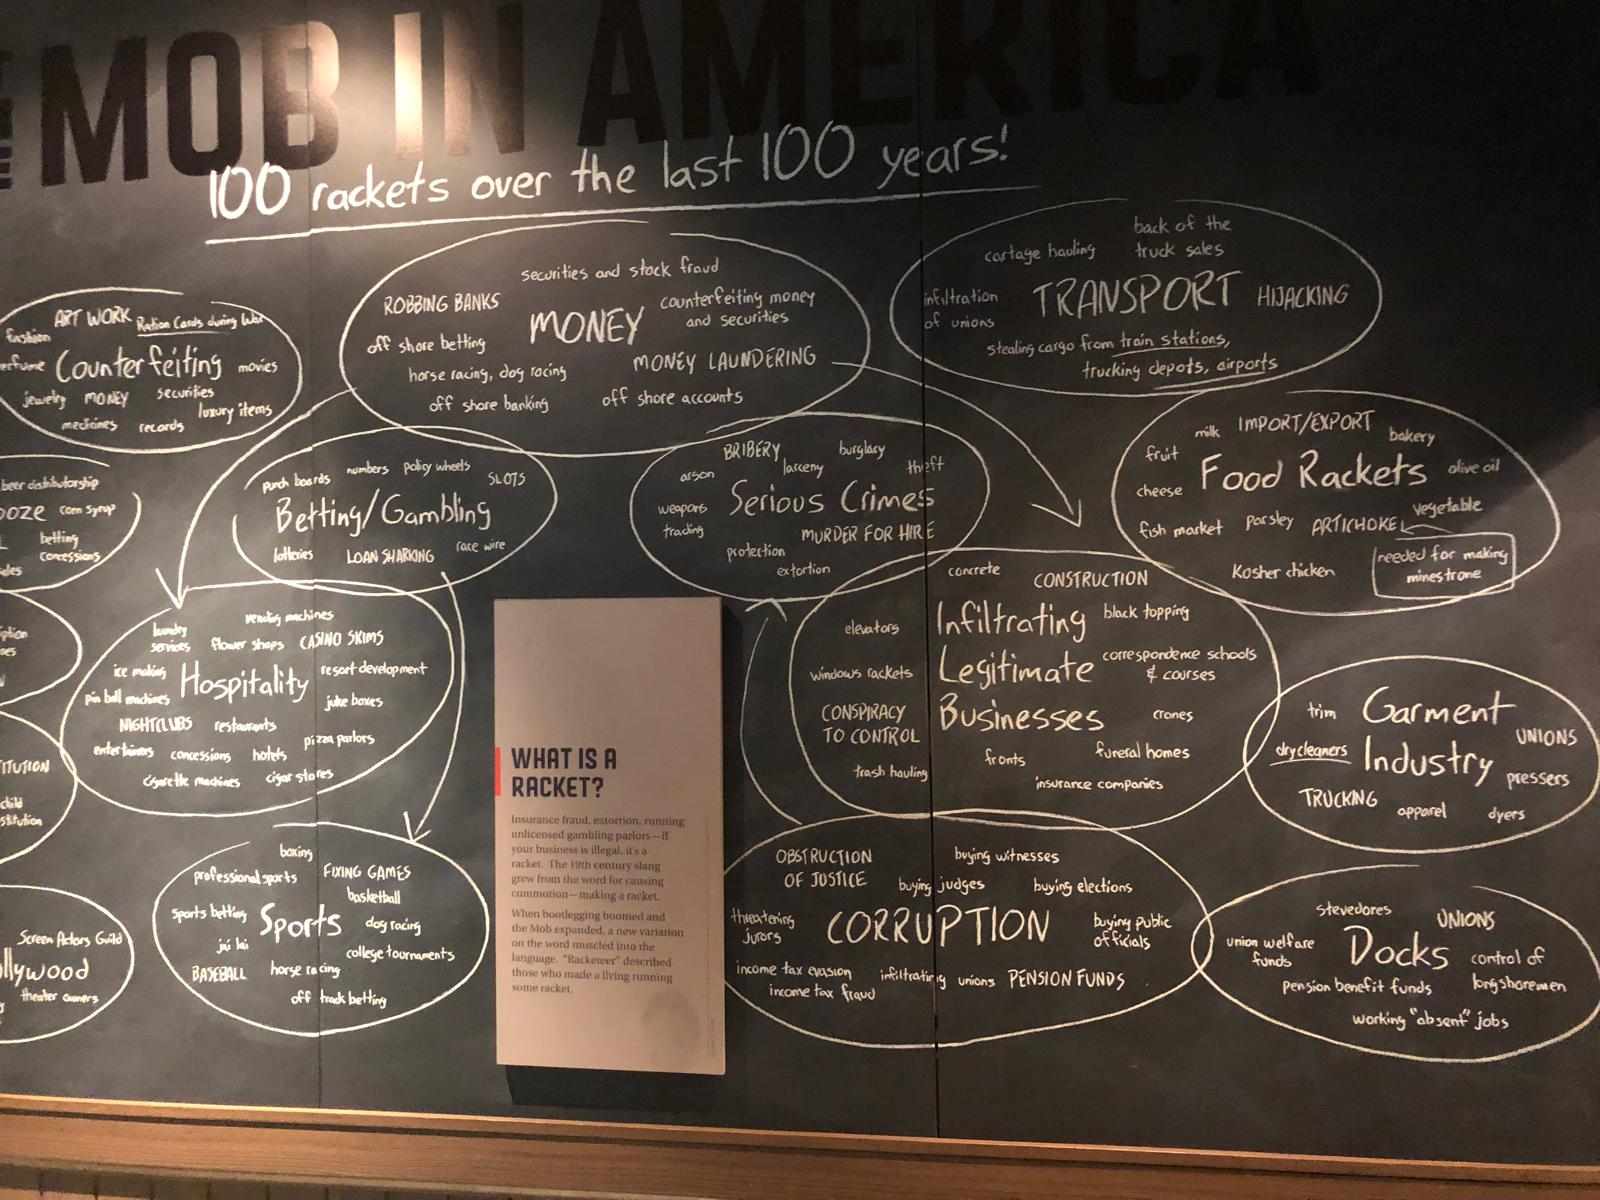 MOB IN AMERICA
100 rackets over the last 100 years!
ART WORK
Ration Cards during War
fashion
Counterfeiting
movies
jewelry
MONEY
securities
luxury items
medicines
records
securities and stock fraud
ROBBING BANKS
MONEY
counterfeiting money
and securities
off shore betting
MONEY LAUNDERING
horse racing, dog racing
off shore banking
off shore accounts
back of the
truck sales
cartage hauling
infiltration
of unions
TRANSPORT
HIJACKING
stealing cargo from train stations,
trucking depots, airports
beer distributorship
corn syrup
betting
concessions
punch boards
numbers
policy wheels
SLOTS
Betting/Gambling
lotteries
LOAN SHARKING
race wire
BRIBERY
burglary
arson
larceny
theft
weapons
trading
Serious Crimes
MURDER FOR HIRE
protection
extortion
milk
IMPORT/EXPORT
bakery
fruit
Food Rackets
olive oil
cheese
vegetable
fish market
parsley
ARTICHOKE
Kosher chicken
needed for making
minestrone
vending machines
laundry
services
flower shops
CASINO SKIMS
ice making
Hospitality
resort development
pin ball machines
juke boxes
NIGHTCLUBS
restaurants
pizza parlors
entertainers
concessions
hotels
cigarette machines
cigar stores
concrete
CONSTRUCTION
elevators
Infiltrating
Legitimate
Businesses
black topping
windows rackets
correspondence schools
& courses
CONSPIRACY
TO CONTROL
cranes
fronts
funeral homes
trash hauling
insurance companies
trim
Garment
Industry
UNIONS
drycleaners
pressers
TRUCKING
apparel
dyers
WHAT IS A
RACKET?
Insurance fraud, extortion, running
unlicensed gambling parlors—if
your business is illegal, it's a
racket. The 19th century slang
grew from the word for causing
commotion—making a racket.
When bootlegging boomed and
the Mob expanded, a new variation
on the word muscled into the
language. "Racketeer" described
those who made a living running
some racket.
boxing
professional sports
FIXING GAMES
basketball
sports betting
Sports
dog racing
jai lai
college tournaments
BASEBALL
horse racing
off track betting
Screen Actors Guild
theater owners
OBSTRUCTION
OF JUSTICE
buying witnesses
buying judges
buying elections
threatening
jurors
CORRUPTION
buying public
officials
income tax evasion
infiltrating unions
PENSION FUNDS
income tax fraud
stevedores
UNIONS
union welfare
funds
Docks
control of
longshoremen
pension benefit funds
working "absent" jobs